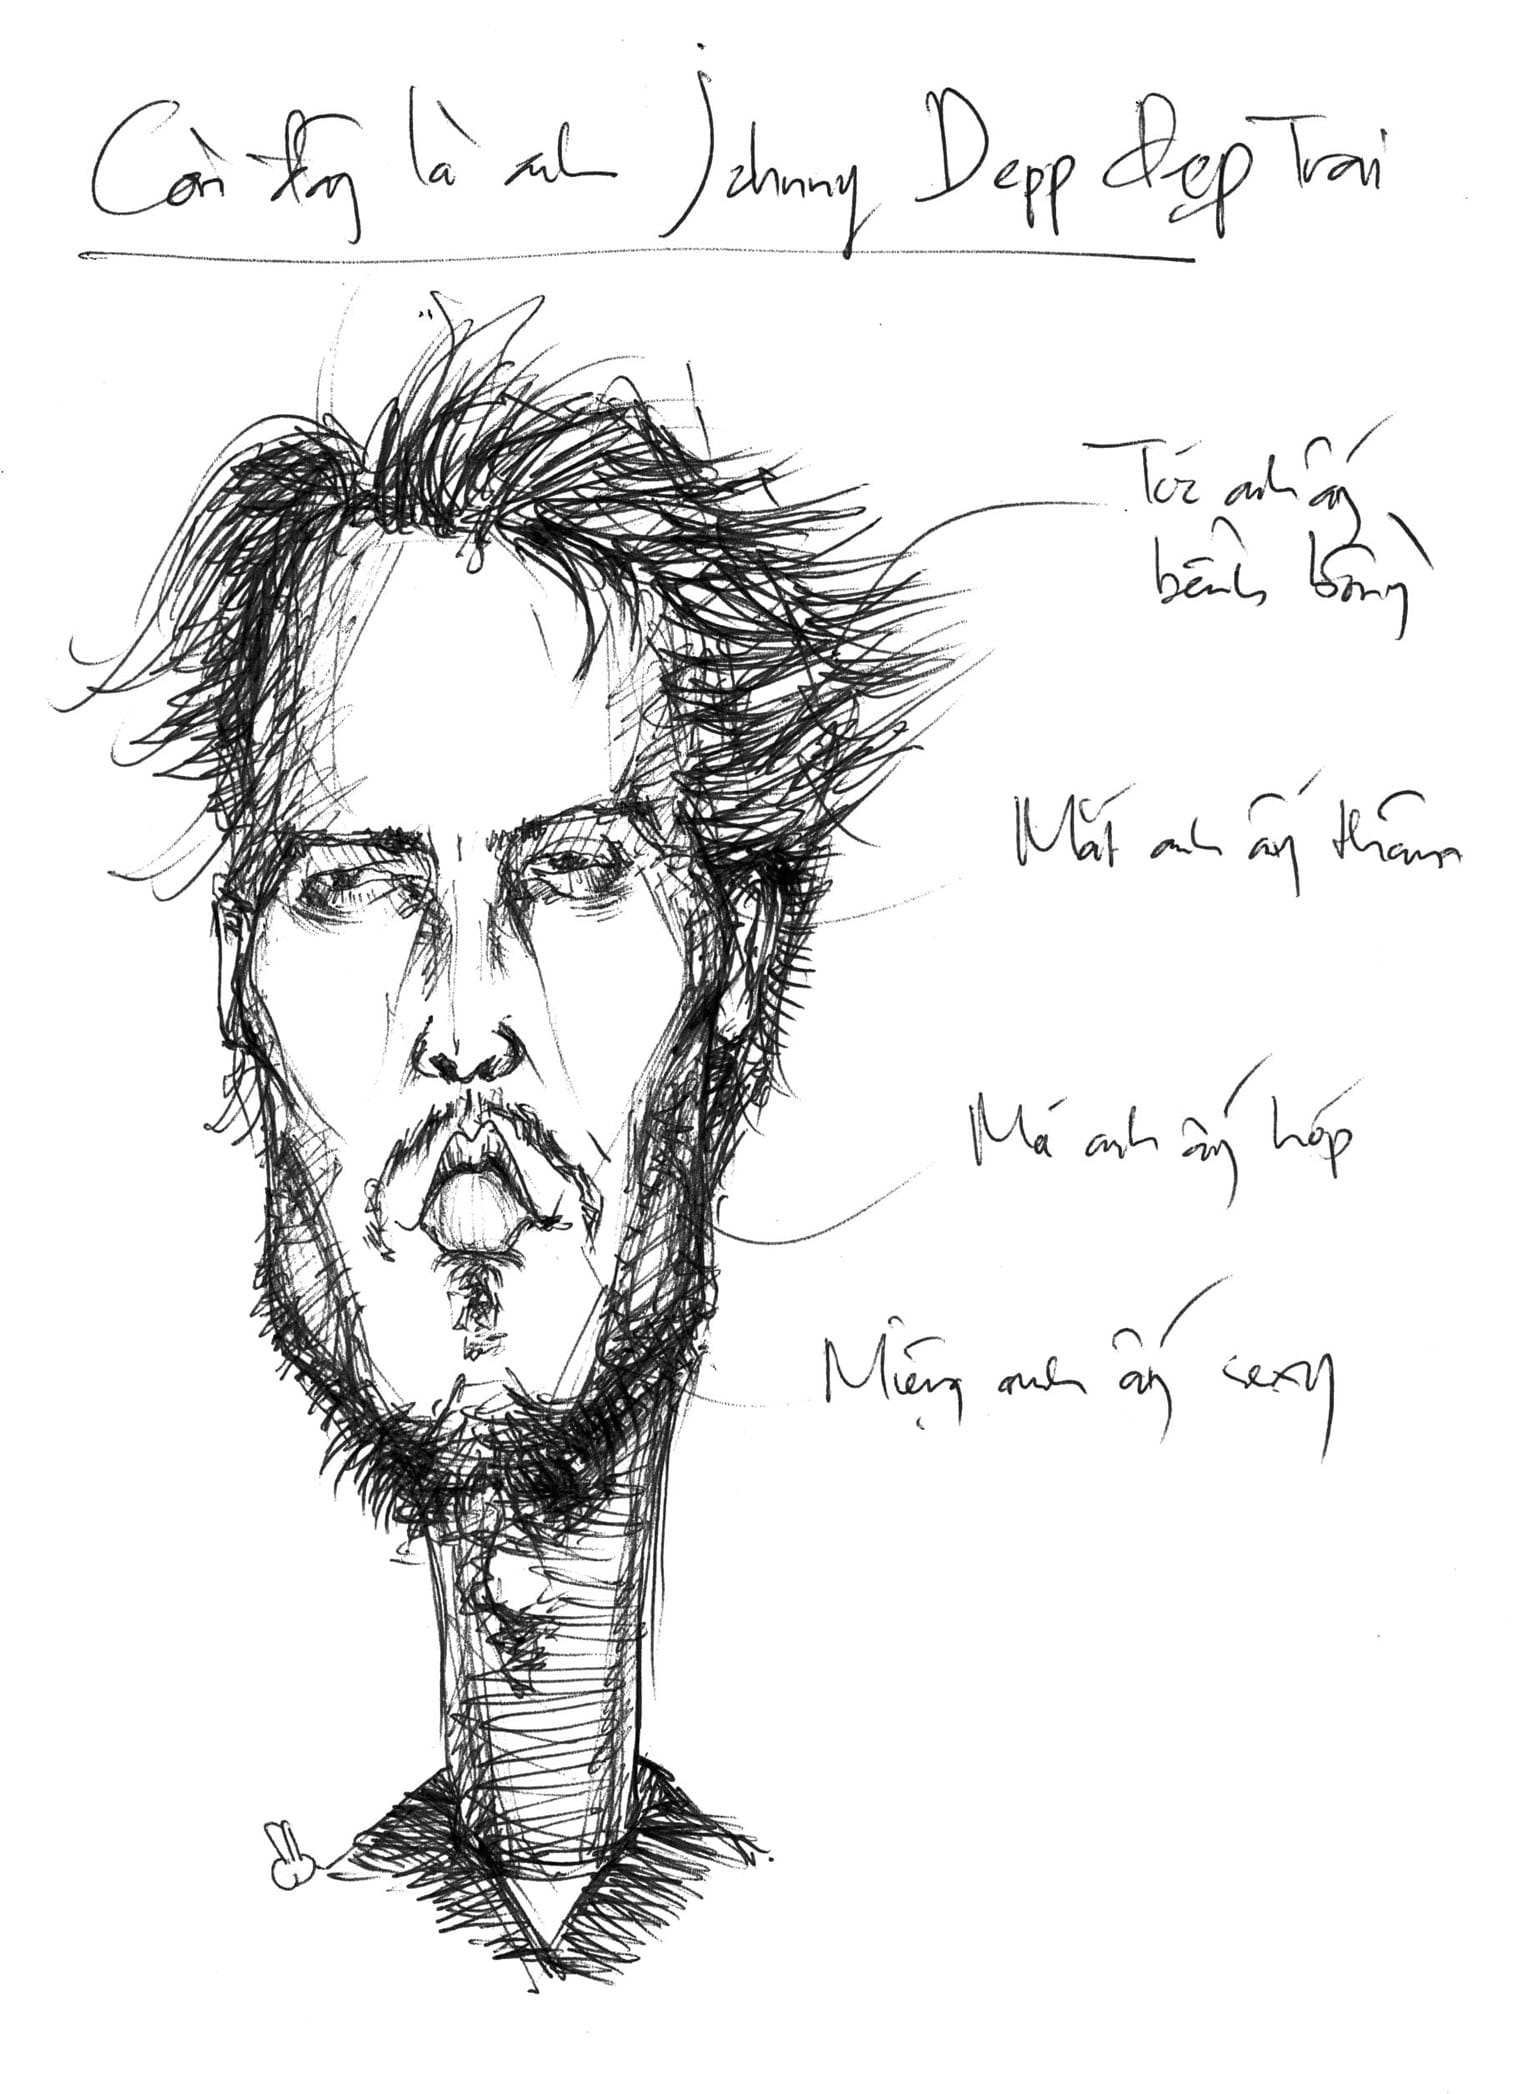 Còn đây là anh Johnny Depp đẹp Trai
Tóc anh ấy
bềnh bồng
Mắt anh ấy thâm
Má anh ấy hóp
Miệng anh ấy sexy